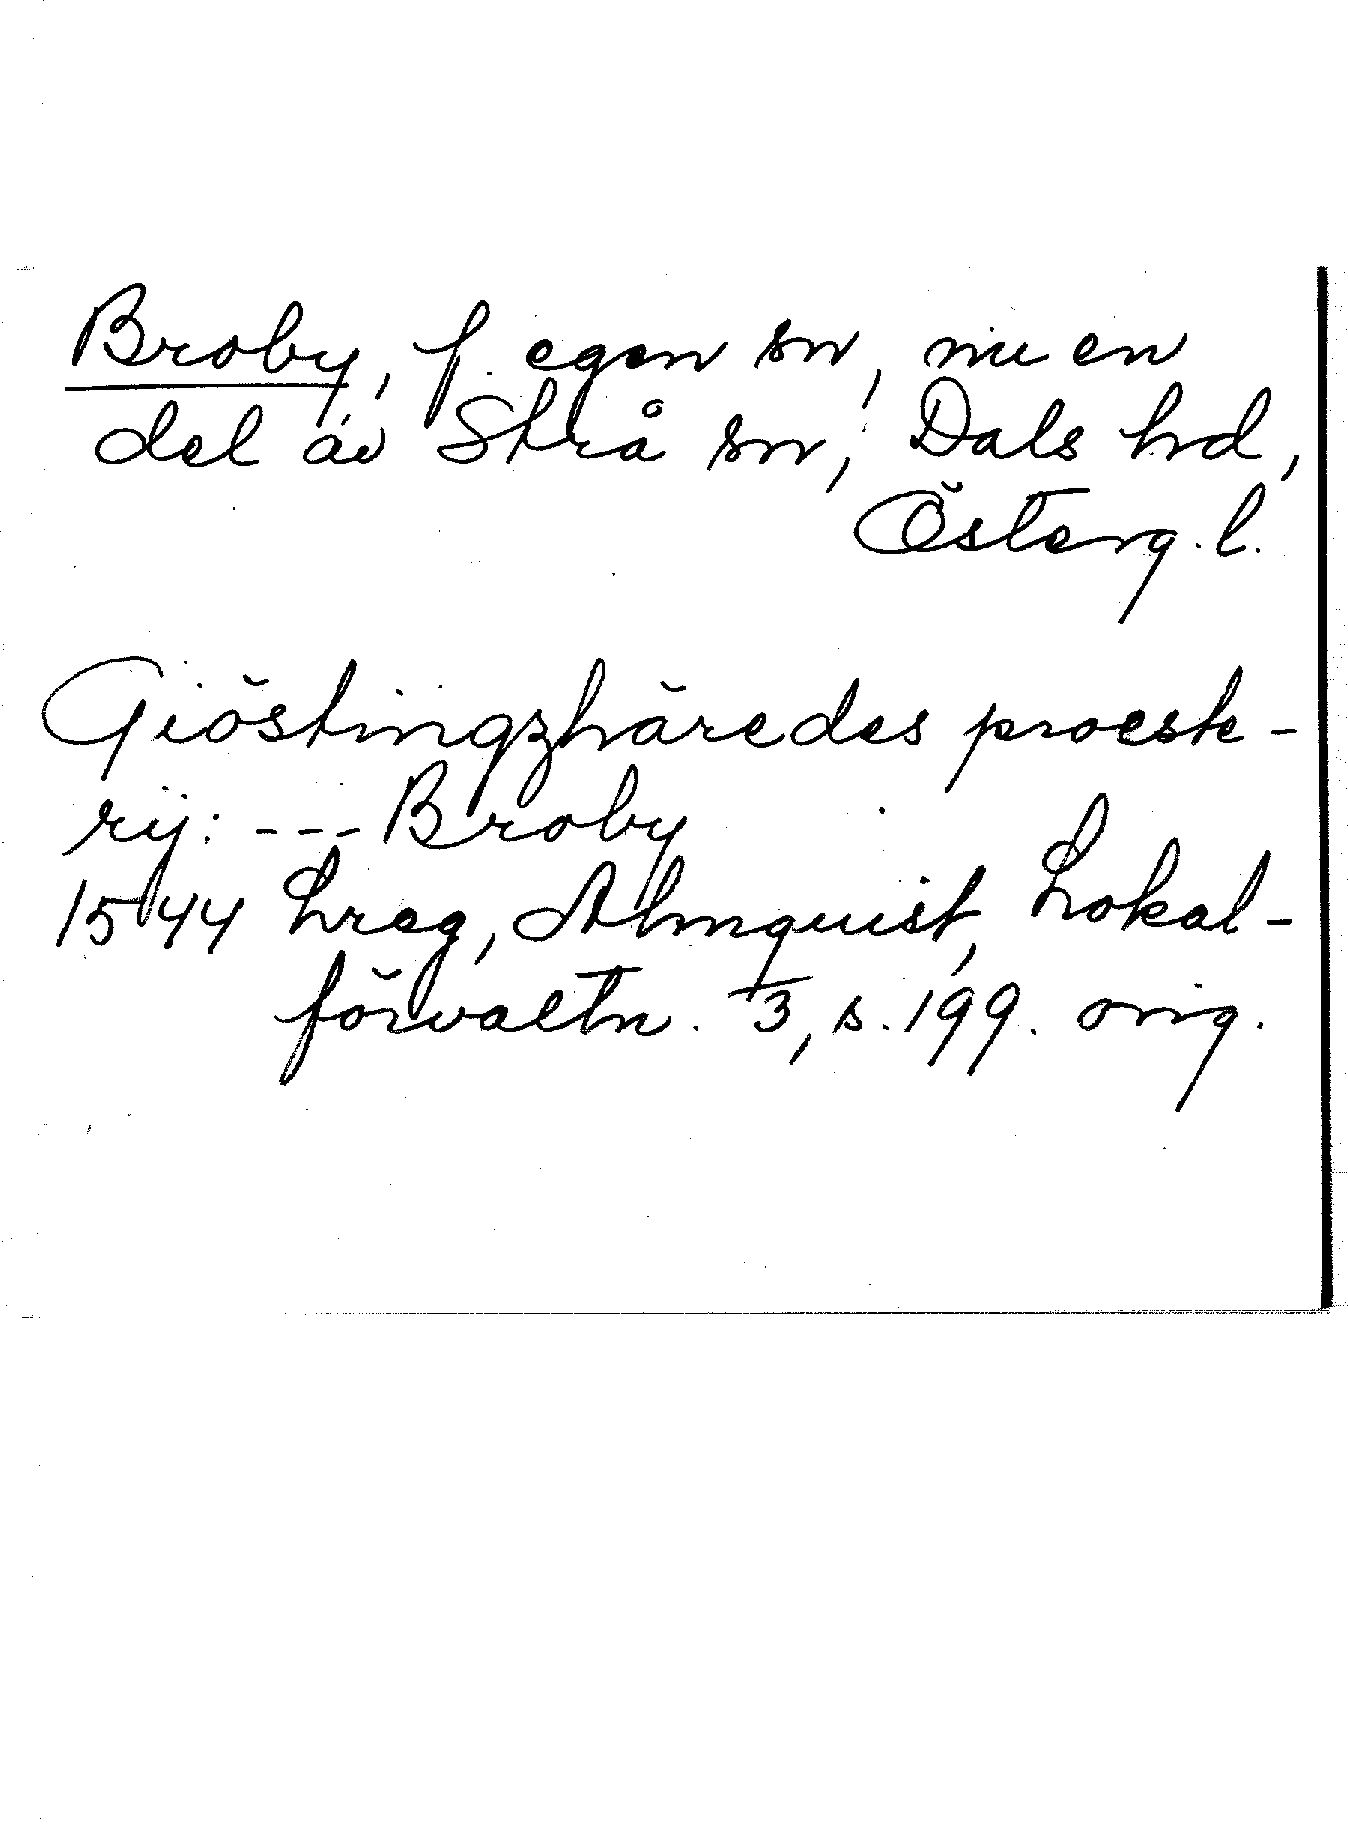 Broby, f. egen sn, nu en
del av Strå sn, Dals hd,
Österg. l.
Giöstingzhäredes proeste-
rij: --- Broby
1544 Lreg, Almquist, Lokal-
förvaltn. 3, s. 199. orig.